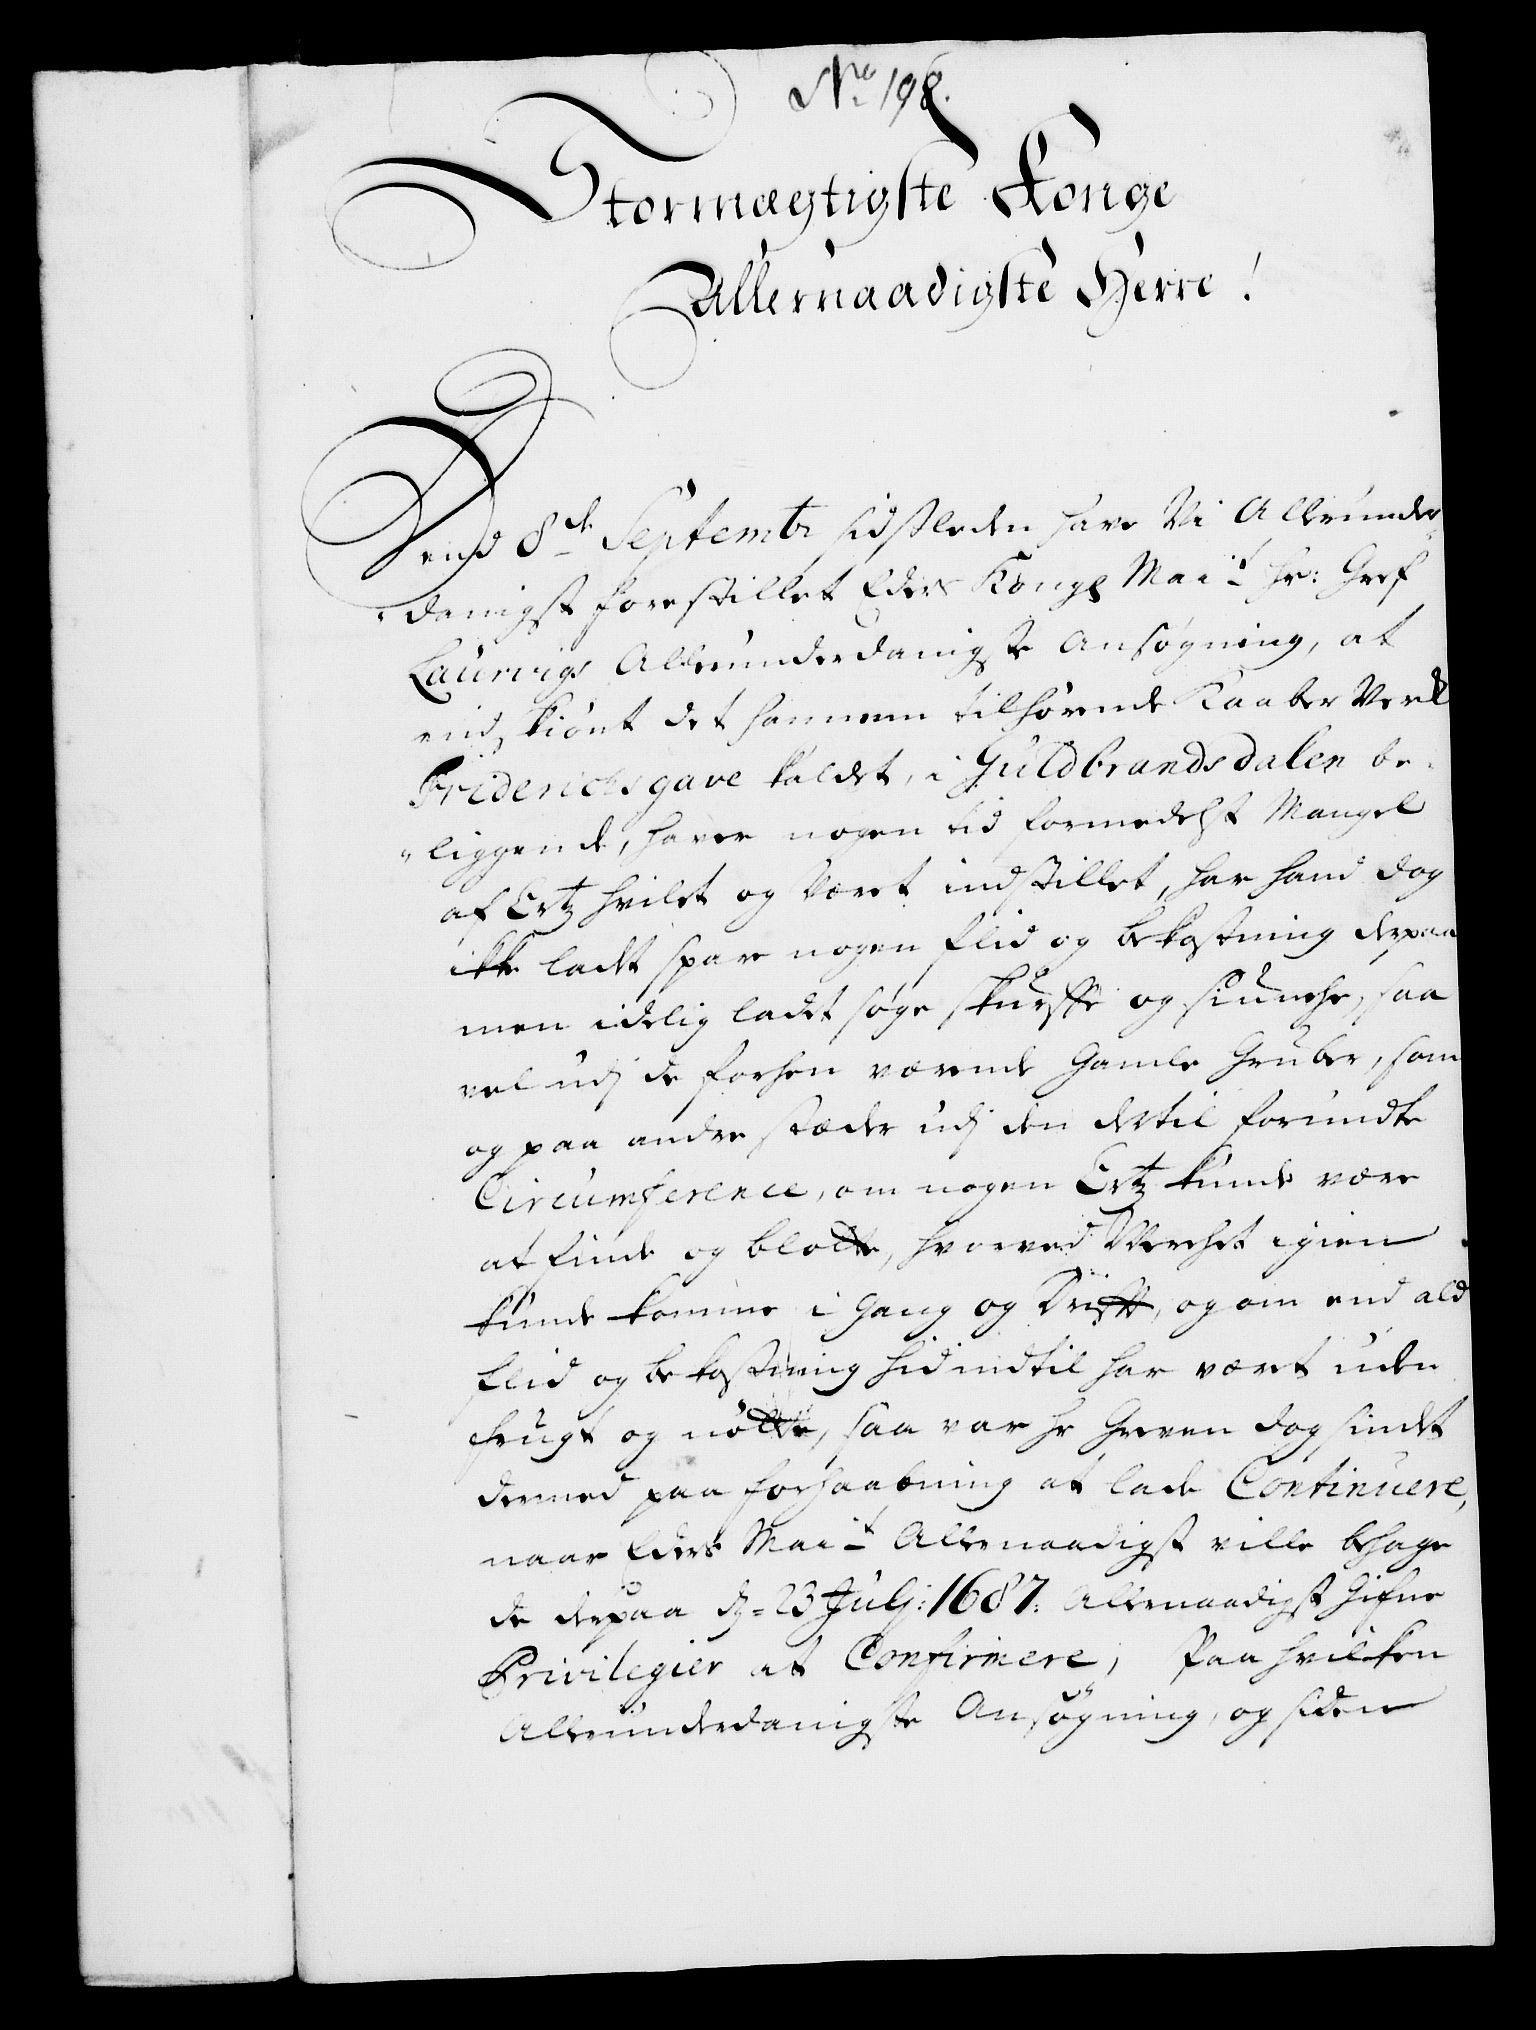 No 198.
Stormægtigste Konge
Allernaadigste Herre!
Dend 8de Septembr sidstleden have Vi Allerunder
danigst forestillet Eders Kongl Mait hr: Gref
Laurvigs Allerunderdanigste Ansøgning, at
end skiönt det hannem tilhørende Kaaber Verk
Friderichsgave kaldet, i Guldbrandsdalen be¬
liggende, haver nogen tid formedelst Mangel
af Ertz hvilet og været indstillet, har hand dog
ikke ladt spare nogen flid og bekostning derpaa
men idelig ladet søge skurffe og siunche, saa
vel udj de forhen værende Gamle Gruber, som
og paa andre stæder udj den dertil forundte
Circumference, om nogen Ertz kunde være
at finde og blotte, hvorved Werchet igien
kunde komme i gang og Drifft, og om end ald
flid og bekostning hid indtil har været uden
frugt og nötte, saa var hr Greven dog sindet
dermed paa forhaabning at lade Continuere,
naar Eders Mait Allernaadigst ville behage
de derpaa d: 23 Julj: 1687: Allernaadigst Gifne
Privilegier at Confirmere, Paa hvilken
Allerunderdanigste Ansøgning, og siden